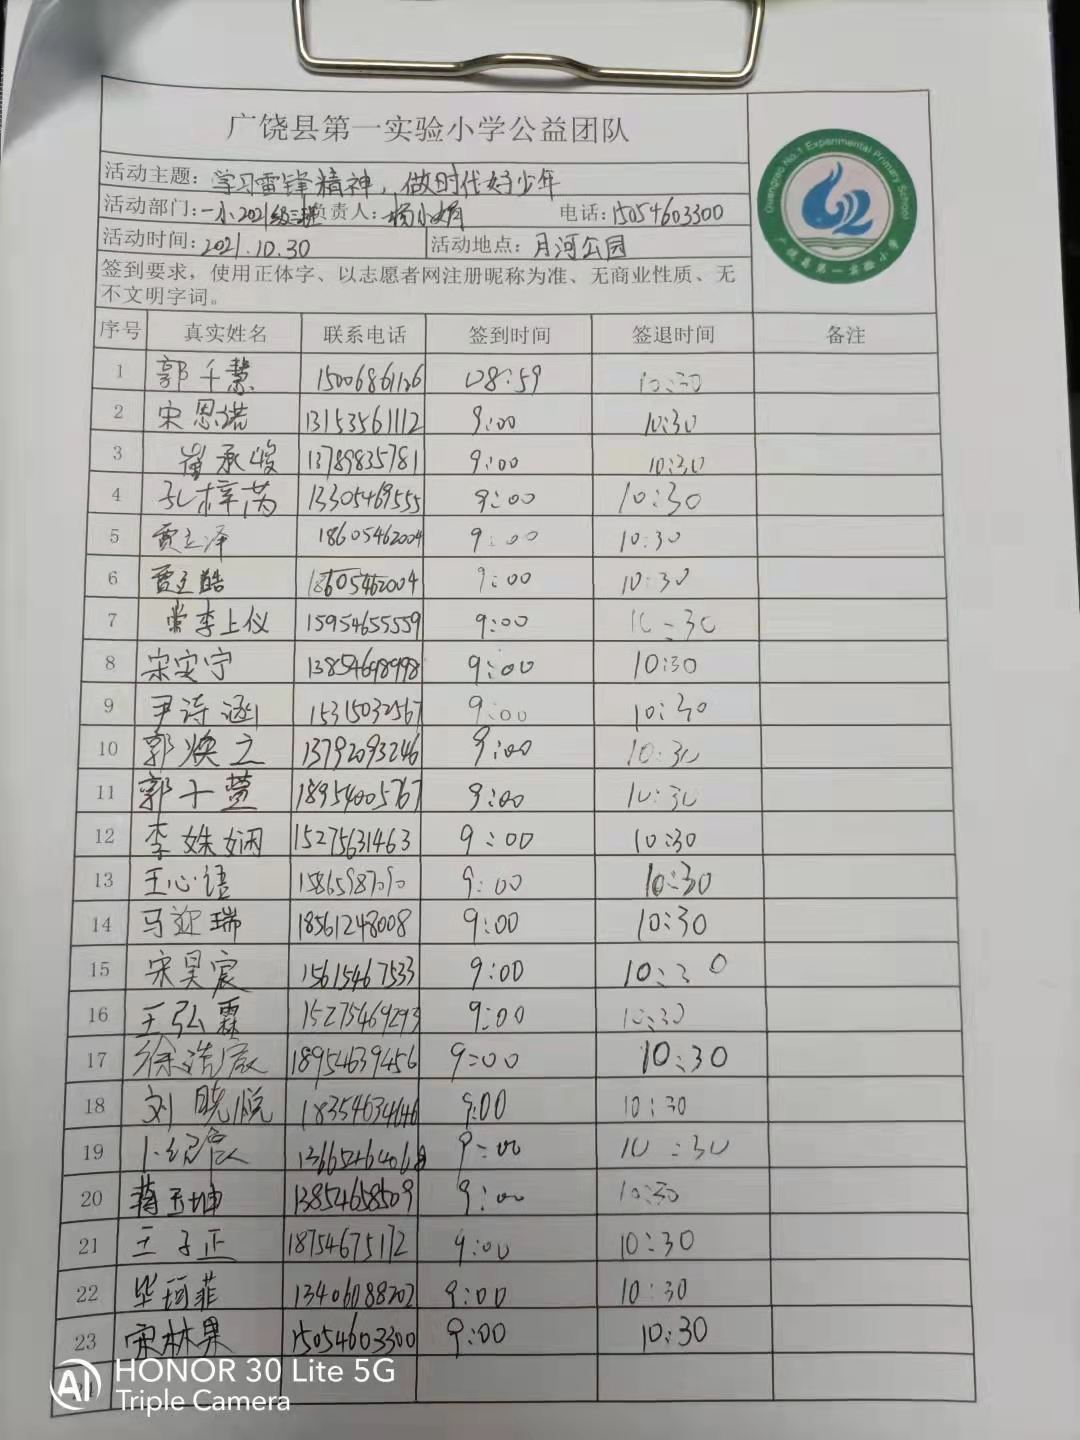 广饶县第一实验小学公益团队
Guangrao No.1 Experimental Primary School
广饶县第一实验小学
活动主题：学习雷锋精神，做时代好少年
活动部门：一小2021级三班 负责人：杨小娟 电话：15054603300
活动时间：2021.10.30 活动地点：月河公园
签到要求，使用正体字、以志愿者网注册昵称为准、无商业性质、无
不文明字词。
序号 真实姓名 联系电话 签到时间 签退时间 备注
1 郭千慧 15006861126 08:59 10:30
2 宋恩诺 13153561112 9:00 10:30
3 崔承峻 13789835781 9:00 10:30
4 孔梓芮 13305469555 9:00 10:30
5 贾立泽 18605462004 9:00 10:30
6 贾立皓 18605462004 9:00 10:30
7 常李上仪 15954655559 9:00 10:30
8 宋奕宁 13854698998 9:00 10:30
9 尹诗涵 15315032567 9:00 10:30
10 郭焕之 13792093246 9:00 10:30
11 郭十萱 18954005767 9:00 10:30
12 李姝娴 15275631463 9:00 10:30
13 王心语 15865987090 9:00 10:30
14 马迎瑞 18561248008 9:00 10:30
15 宋昊宸 15615467533 9:00 10:30
16 王弘霖 15275469293 9:00 10:30
17 徐浩宸 18954639456 9:00 10:30
18 刘晓悦 18354634646 9:00 10:30
19 卜纪宸 9:00 10:30
20 蒋玉坤 13854658509 9:00 10:30
21 王子正 18754675172 9:00 10:30
22 毕珂菲 13406088202 9:00 10:30
23 宋林果 15054603300 9:00 10:30
24
AI HONOR 30 Lite 5G
Triple Camera